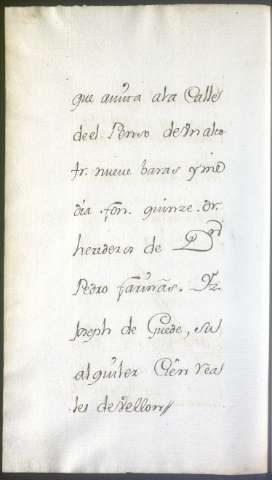 que avita a la Calle
de el Penso de Un alto
fr. nueve baras y me
dia fon. quinze. Dr.
herederos de Dn.
Pedro fariñas. Yz.
Joseph de Guede, su
alquiler Cien Rea
les de vellon//